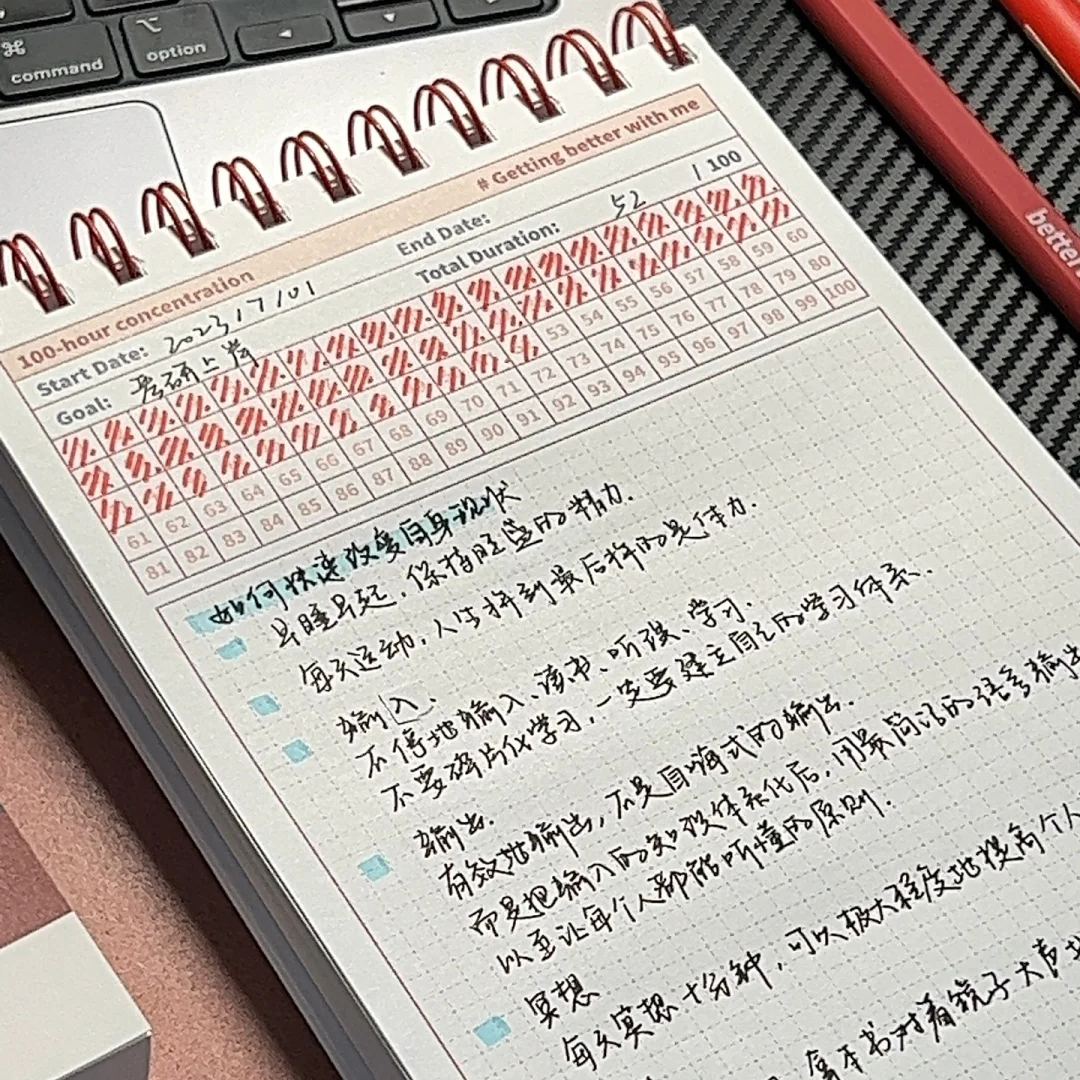 ⌘
command
⌥
option
◀
▼
# Getting better with me
100-hour concentration
Start Date: 2023/7/01
End Date:
Goal: 考研上岸
Total Duration: 52 / 100
53 54 55 56 57 58 59 60
61 62 63 64 65 66 67 68 69 70 71 72 73 74 75 76 77 78 79 80
81 82 83 84 85 86 87 88 89 90 91 92 93 94 95 96 97 98 99 100
如何快速改变自身现状
早睡早起，保持旺盛的精力.
每天运动，人生拼到最后拼的是体力.
输入.
不停地输入、读书、听课、学习.
不要碎片化学习，一定要建立自己的学习体系.
输出.
有效地输出，不是自嗨式的输出.
而是把输入的知识体系化后，用最简洁的语言输出
以至让每个人都能听懂的原则.
冥想
每天冥想十分钟，可以极大程度地提高个人
拿本书对着镜子大声地
better